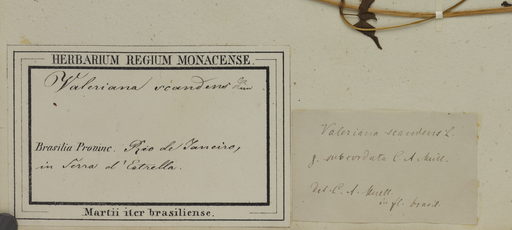 HERBARIUM REGIUM MONACENSE.
Valeriana scandens
Brasilia Provinc. Rio de Janeiro,
in Serra d'Estrella.
Martii iter brasiliense.
Valeriana scandens L.
γ. subcordata C. A. Müll.
det. C. A. Muell.
in fl. brasil.